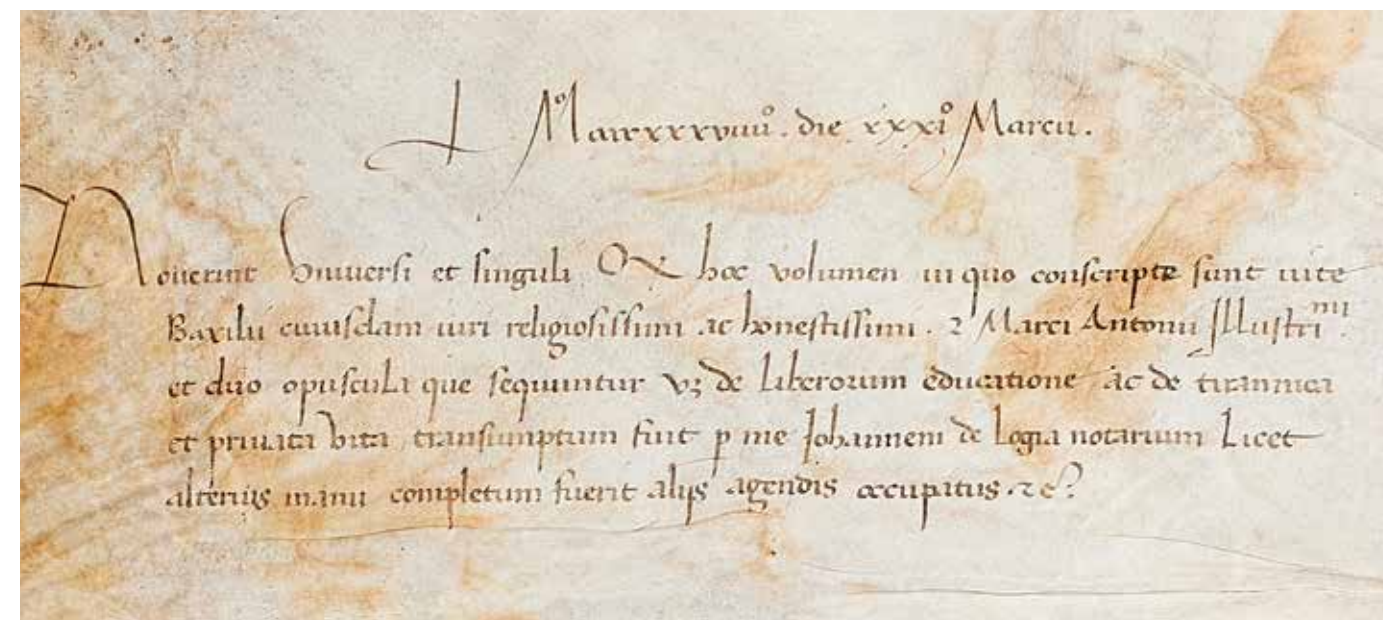 Mº iiijcxxxxviiiiº . die xxxiº Marcii .
Noverint Vniuersi et singuli Qx hoc volumen in quo conscripte sunt uite
Baxilii cuiusdam uiri religiosissimi ac honestissimi . 2 Marci Antonii Jllustri mi .
et duo opuscula que sequuntur vꝫ de liberorum educatione ac de tirannica
et priuata vita transumptum fuit p me Johannem de Logia notarium Licet
alterius manu completum fuerit alijs agendis occupatus . 2 c?